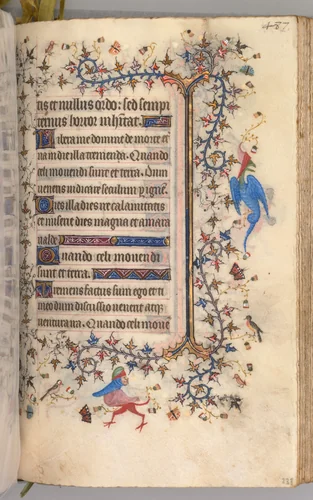 487
tis et nullus ordo: sed sempi
ternus horror inhitat.
Libera me domine de morte et
na in die illa tremenda. Quando
celi movendi sunt et terra. Dum
veneris iudicare seculum per igne.
Dies illa dies ire calamitatis
et miserie dies magna et amara
valde.
Quando celi movendi
sunt et terra.
Tremens factus sum ego et ti
meo dum discussio venerit atqz
ventura ira. Quando celi move